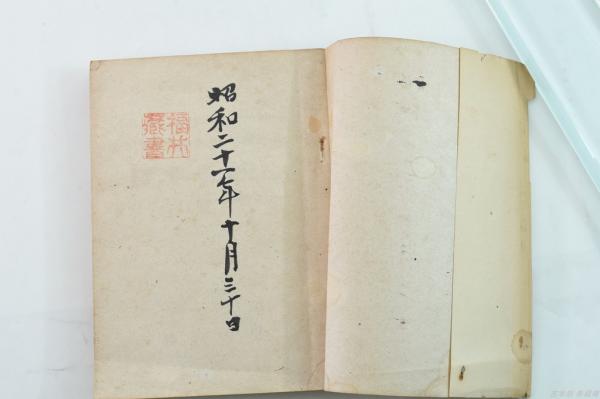 昭和二十六年十月三十日
福林
藏書